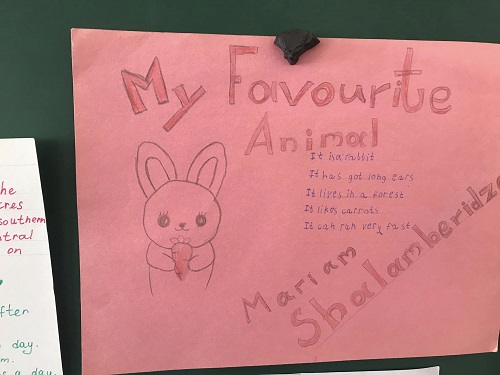 My Favourite
Animal
It is a rabbit
It has got long ears
It lives in a forest
It likes carrots
It can run very fast
Mariam
Shalamberidze
he
cres
southern
ntral
on
fter
day.
m.
a day.